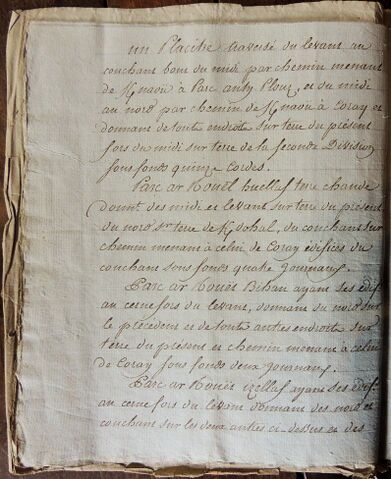 un Placitre traversé du levant au
couchant borné du midi par chemin menant
de Knaou a Parc anty Plouz, et du midi
au nord par chemin de Knaou a Coray et
donnant de toute endroits sur terre du présent
fors du midi sur terre de la seconde Division
sous fonds quinze Cordes.
Parc ar Rouët huellaf terre chaude
donnt. des midi et levant sur terre du present
du nord sr. terre de Kdohal, du couchant sur
chemin menant a celui de Coray édifices du
couchant sous fonds quatre journaux.
Parc ar Rouët Bihan ayant ses édif.
au cerne fors du levant, donnant du nord sur
le précédent et de toute autres endroits sur
terre du present et chemin menant a celui
de Coray sous fonds deux journaux.
Parc ar Rouët izellaf ayant ses édif
au cerne fors du levant donnant des nord et
couchant sur les deux autres ci-dessus et des